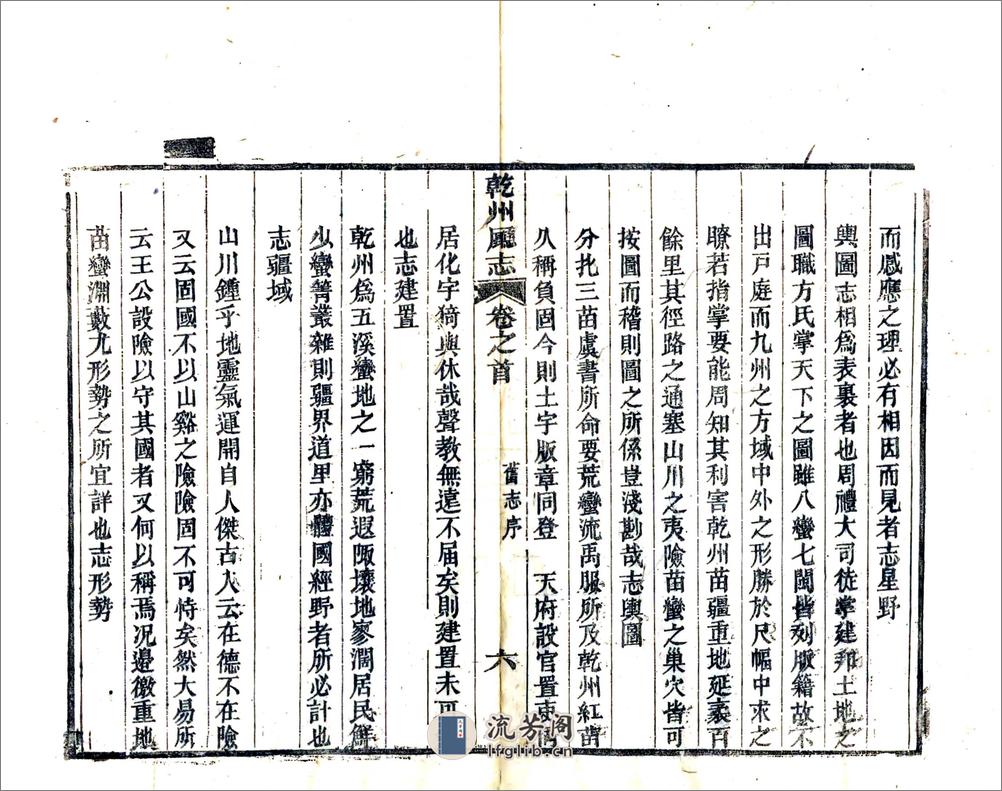 而感應之理必有相因而見者志星野
輿圖志相爲表裏者也周禮大司徒掌建邦土地之
圖職方氏掌天下之圖雖八蠻七閩皆列版籍故不
出戸庭而九州之方域中外之形勝於尺幅中求之
瞭若指掌要能周知其利害乾州苗疆重地延袤百
餘里其徑路之通塞山川之夷險苗蠻之巢穴皆可
按圖而稽則圖之所係豈淺尠哉志輿圖
分北三苗虞書所命要荒蠻流禹服所及乾州紅苗
久稱負固今則土宇版章同登　天府設官置吏
乾州廳志　卷之首　舊志序　六
居化宇猗與休哉聲教無遠不届矣則建置未可
也志建置
乾州爲五溪蠻地之一窮荒遐陬壤地寥濶居民鮮
少蠻箐叢雜則疆界道里亦體國經野者所必計也
志疆域
山川鍾乎地靈氣運開自人傑古人云在德不在險
又云固國不以山谿之險險固不可恃矣然大易所
云王公設險以守其國者又何以稱焉况邊徼重地
苗蠻淵藪尤形勢之所宜詳也志形勢
流芳阁
lfglib.cn